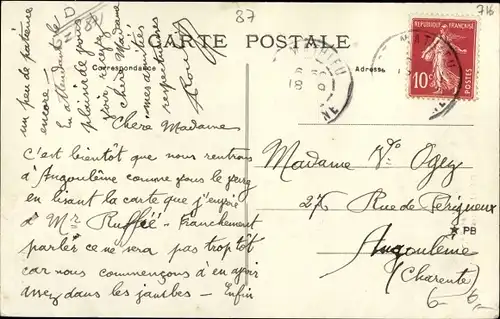 87
87
716
CARTE POSTALE
Correspondance
Adresse
REPUBLIQUE FRANÇAISE
10c
POSTES
MATHIEU
18
NE
Chere Madame
C'est bientôt que nous rentrons
à Angoulême comme vous le
en lisant la carte que j'envoie
à Mr Ruffié - Franchement
parler ce ne sera pas trop tôt
car nous commençons d'en avoir
assez dans les jambes - Enfin
un peu de patience
encore.
En attendant le
plaisir de vous
voir recevez
chère Madame
mes amitiés
respectueuses
Madame Ve Ogez
27 Rue de Périgueux
PB
Angoulême
(Charente)
6-
6,